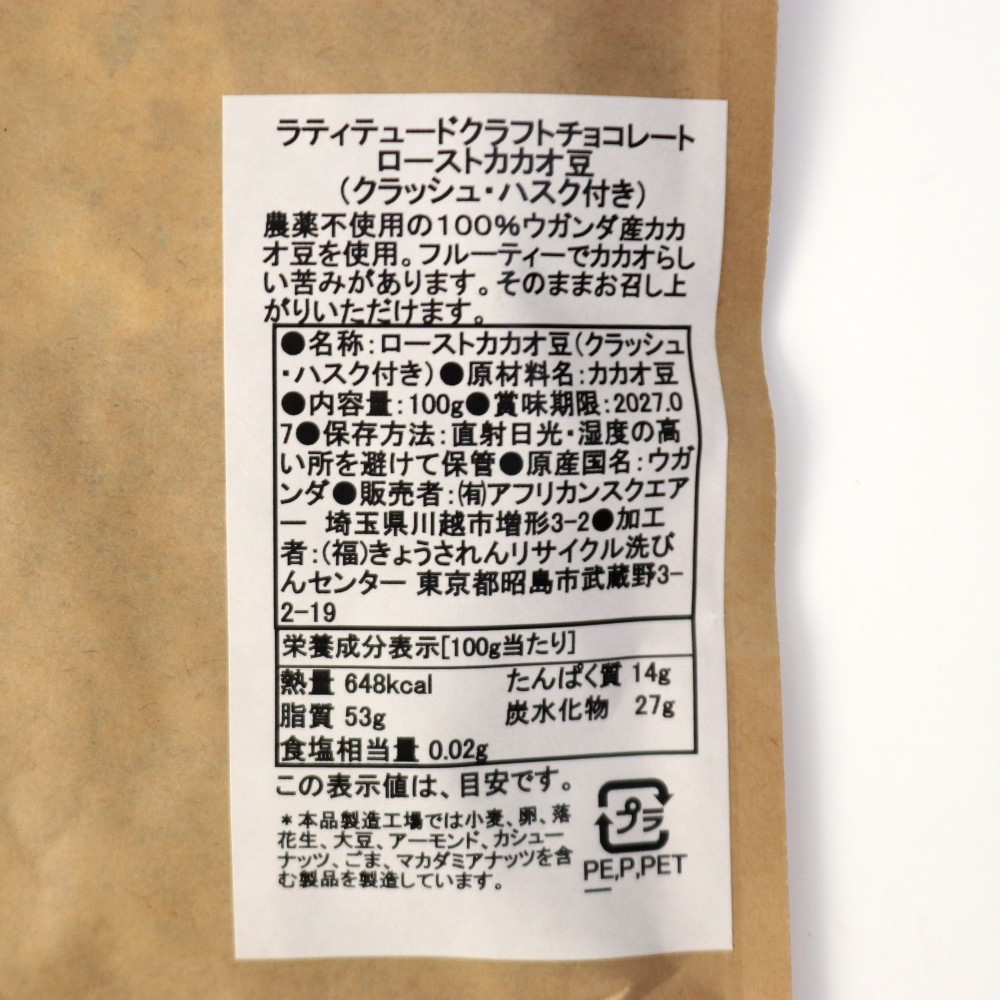 ラティテュードクラフトチョコレート
ローストカカオ豆
（クラッシュ・ハスク付き）
農薬不使用の100%ウガンダ産カカ
オ豆を使用。フルーティーでカカオらし
い苦みがあります。そのままお召し上
がりいただけます。
●名称：ローストカカオ豆（クラッシュ
・ハスク付き）●原材料名：カカオ豆
●内容量：100g●賞味期限：2027.0
7●保存方法：直射日光・湿度の高
い所を避けて保管●原産国名：ウガ
ンダ●販売者：㈲アフリカンスクエア
ー 埼玉県川越市増形3-2●加工
者：（福）きょうされんリサイクル洗び
んセンター 東京都昭島市武蔵野3-
2-19
栄養成分表示[100g当たり]
熱量 648kcal たんぱく質 14g
脂質 53g 炭水化物 27g
食塩相当量 0.02g
この表示値は、目安です。
＊本品製造工場では小麦、卵、落
花生、大豆、アーモンド、カシュー
ナッツ、ごま、マカダミアナッツを含
む製品を製造しています。
プラ
PE,P,PET